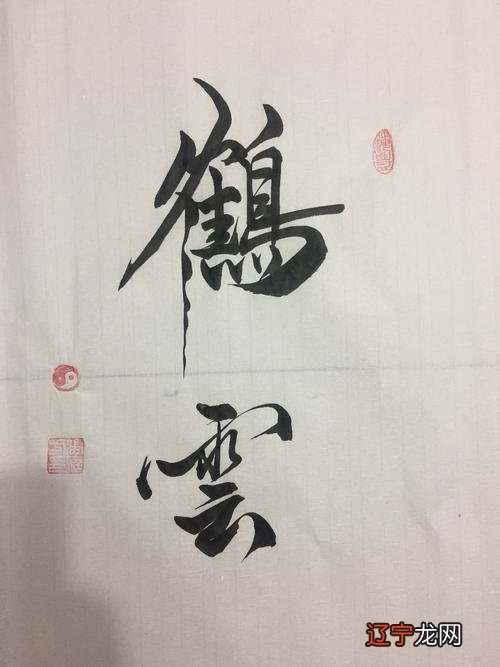 鶴
雲
辽宁龙网